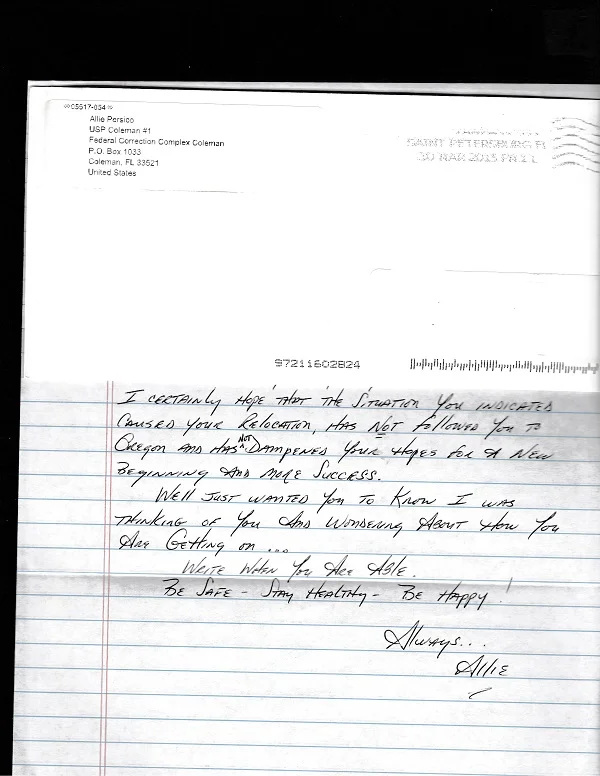 05617-054
Allie Persico
USP Coleman #1
Federal Correction Complex Coleman
P.O. Box 1033
Coleman, FL 33521
United States
SAINT PETERSBURG FL
30 MAR 2013 PM 1 L
97211602824
I certainly hope that the situation you indicated
caused your relocation, has not followed you to
Oregon and has not dampened your hopes for a new
beginning and more success.
Well just wanted you to know I was
thinking of you and wondering about how you
are getting on ...
Write when you are able.
Be safe - stay healthy - be happy!
Always...
Allie